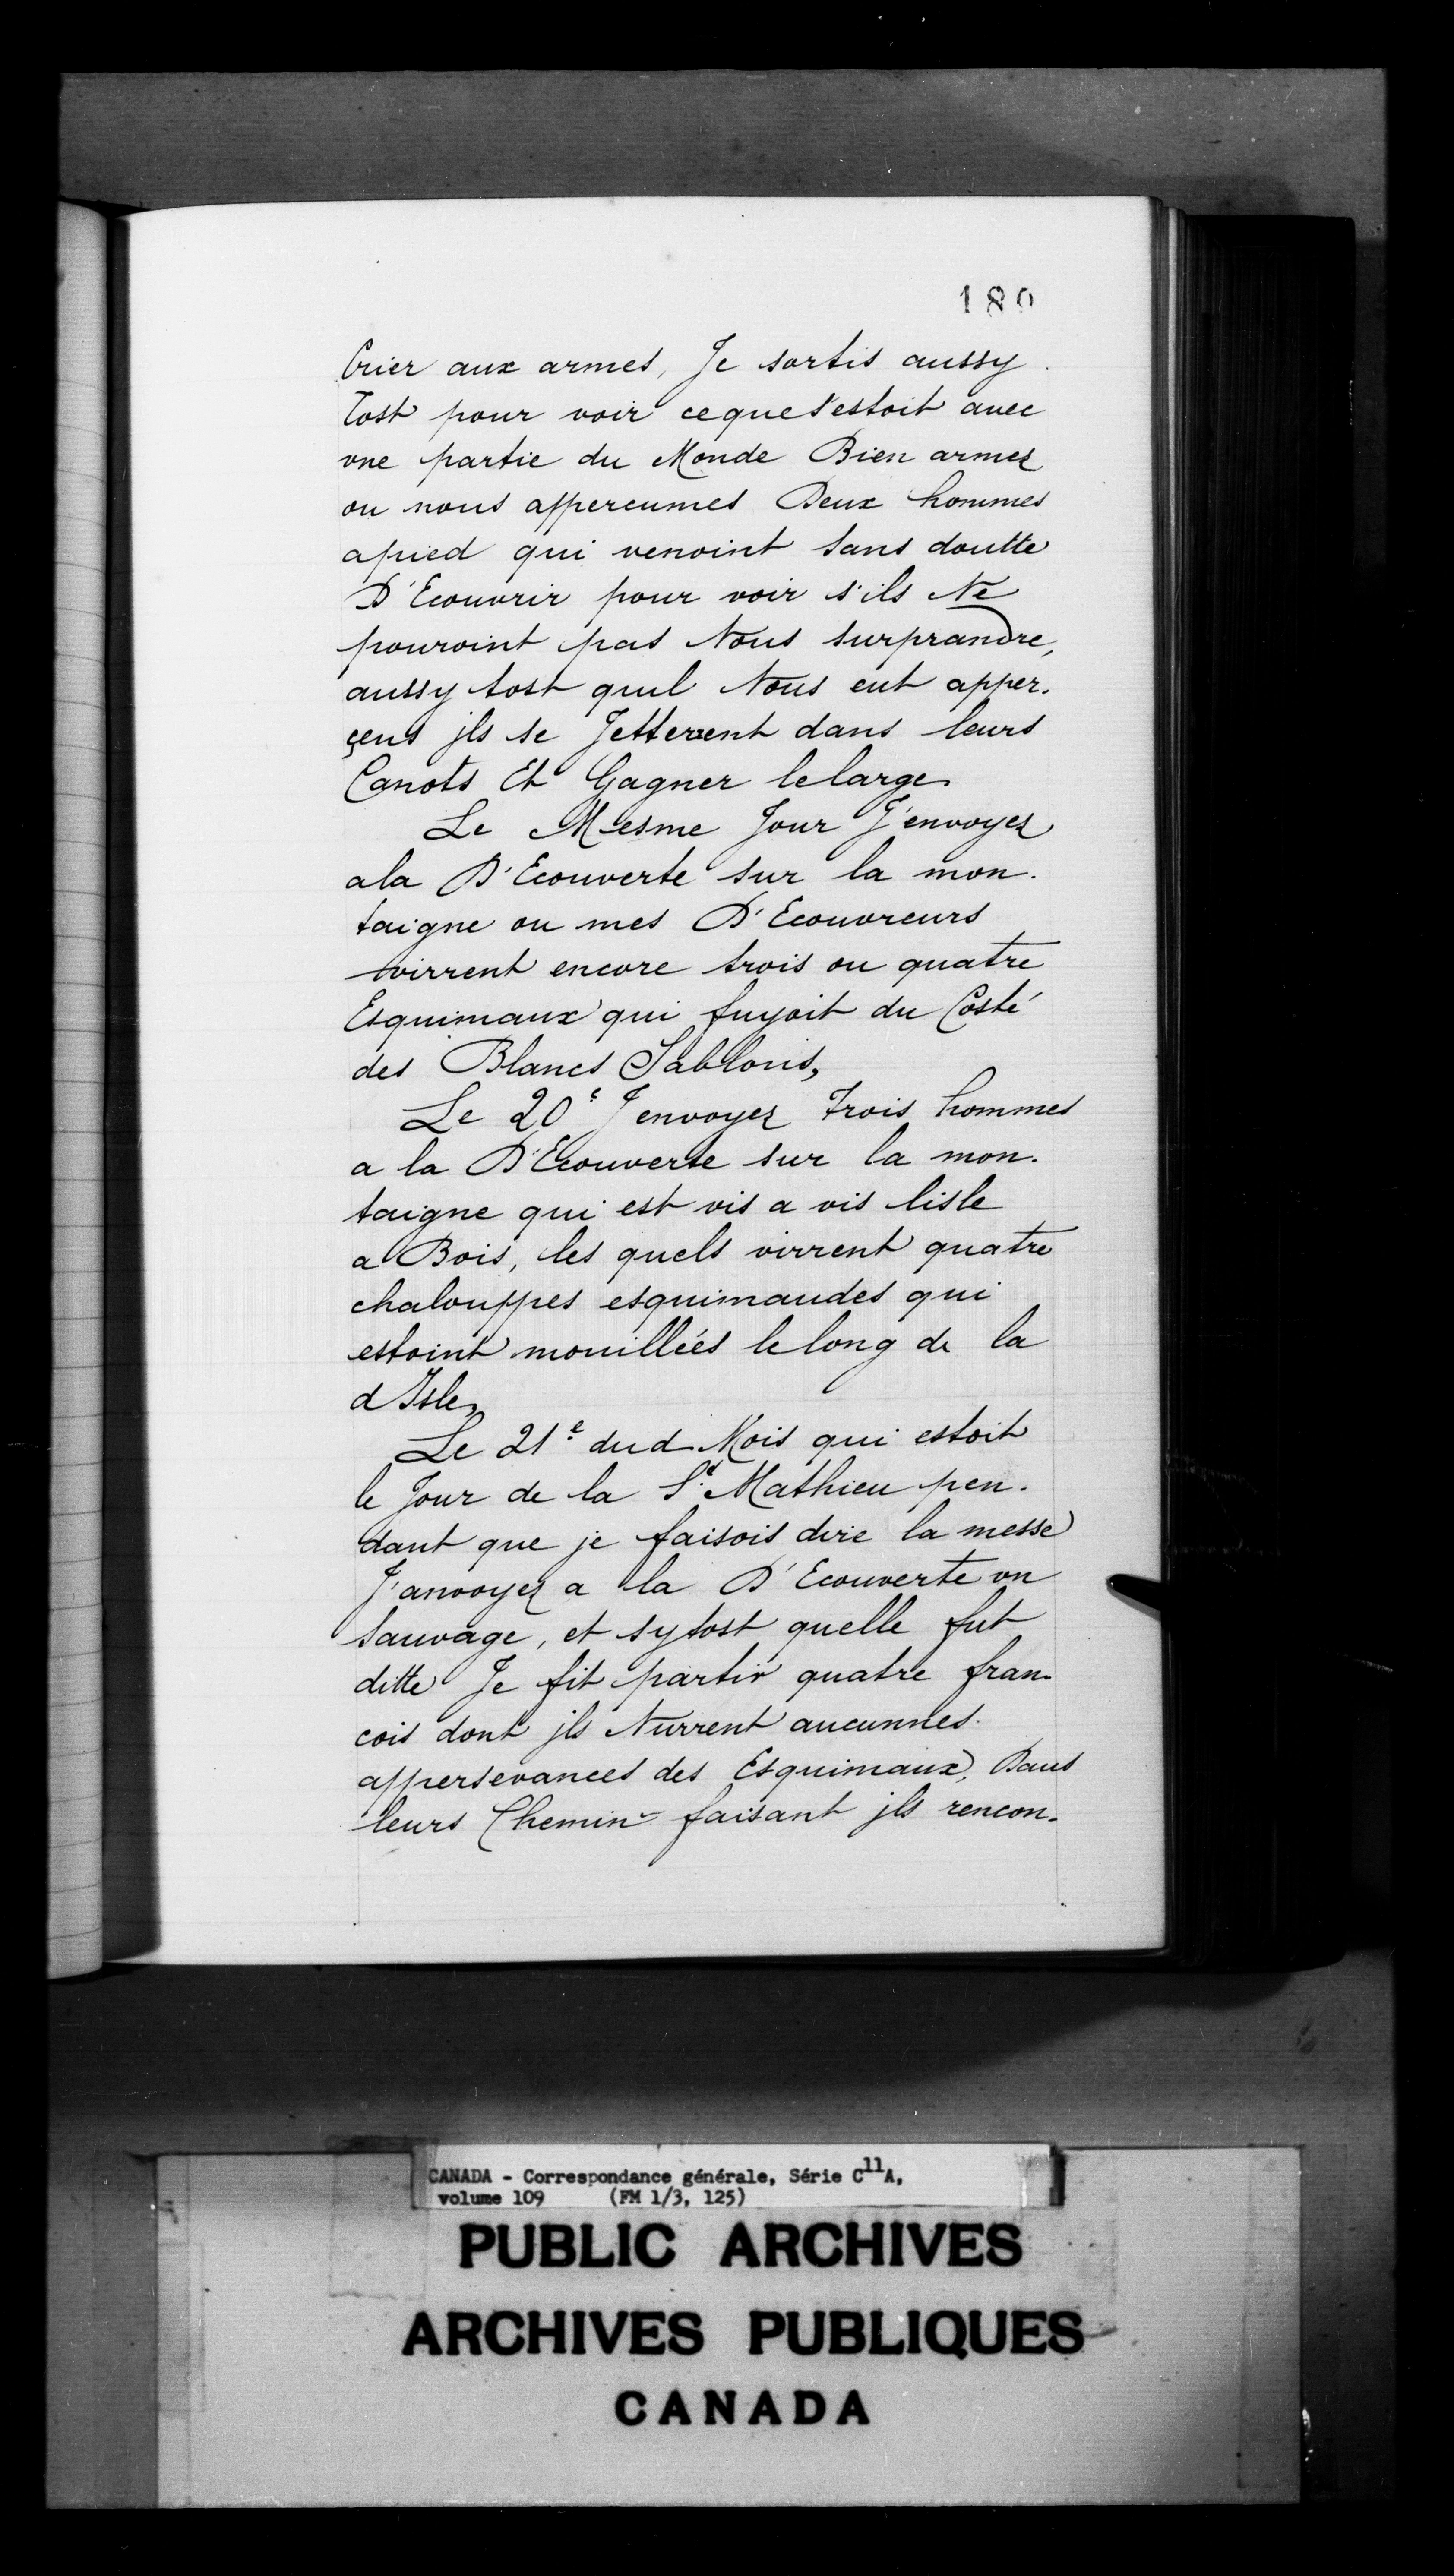 180
Crier aux armes, Je sortis aussy
Tost pour voir ceque s'estoit avec
vne partie du Monde Bien armez
ou nous appercumes Deux hommes
apied qui venoint sans doutte
D'Ecouvrir pour voir s'ils Ne
pouroint pas Nous surprandre,
aussy tost quil Nous eut apper.
çeus jls se Jetterent dans leurs
Canots Et Gagner lelarge
Le Mesme Jour J'envoyez
ala D'Ecouverte sur la mon.
taigne ou mes D'Ecouvreurs
virrent encore trois ou quatre
Esquimaux qui fuyoit du Costé
des Blancs Sablons,
Le 20e J envoyez trois hommes
a la D'Ecouverte sur la mon.
taigne qui est vis a vis lisle
a Bois, les quels virrent quatre
chalouppes esquimaudes qui
estoint mouillées lelong de la
d Isle,
Le 21e dud Mois qui estoit
le Jour de la St Mathieu pen.
dant que je faisois dire la messe
J'anvoyez a la D'Ecouverte vn
Sauvage, et sytost quelle fut
ditte Je fit partir quatre fran-
cois dont jls Nurrent aucunnes
appersevances des Esquimaux, Dans
leurs Chemin faisant jls rencon-
CANADA - Correspondance générale, Série C11A,
volume 109 (FM 1/3, 125)
PUBLIC ARCHIVES
ARCHIVES PUBLIQUES
CANADA